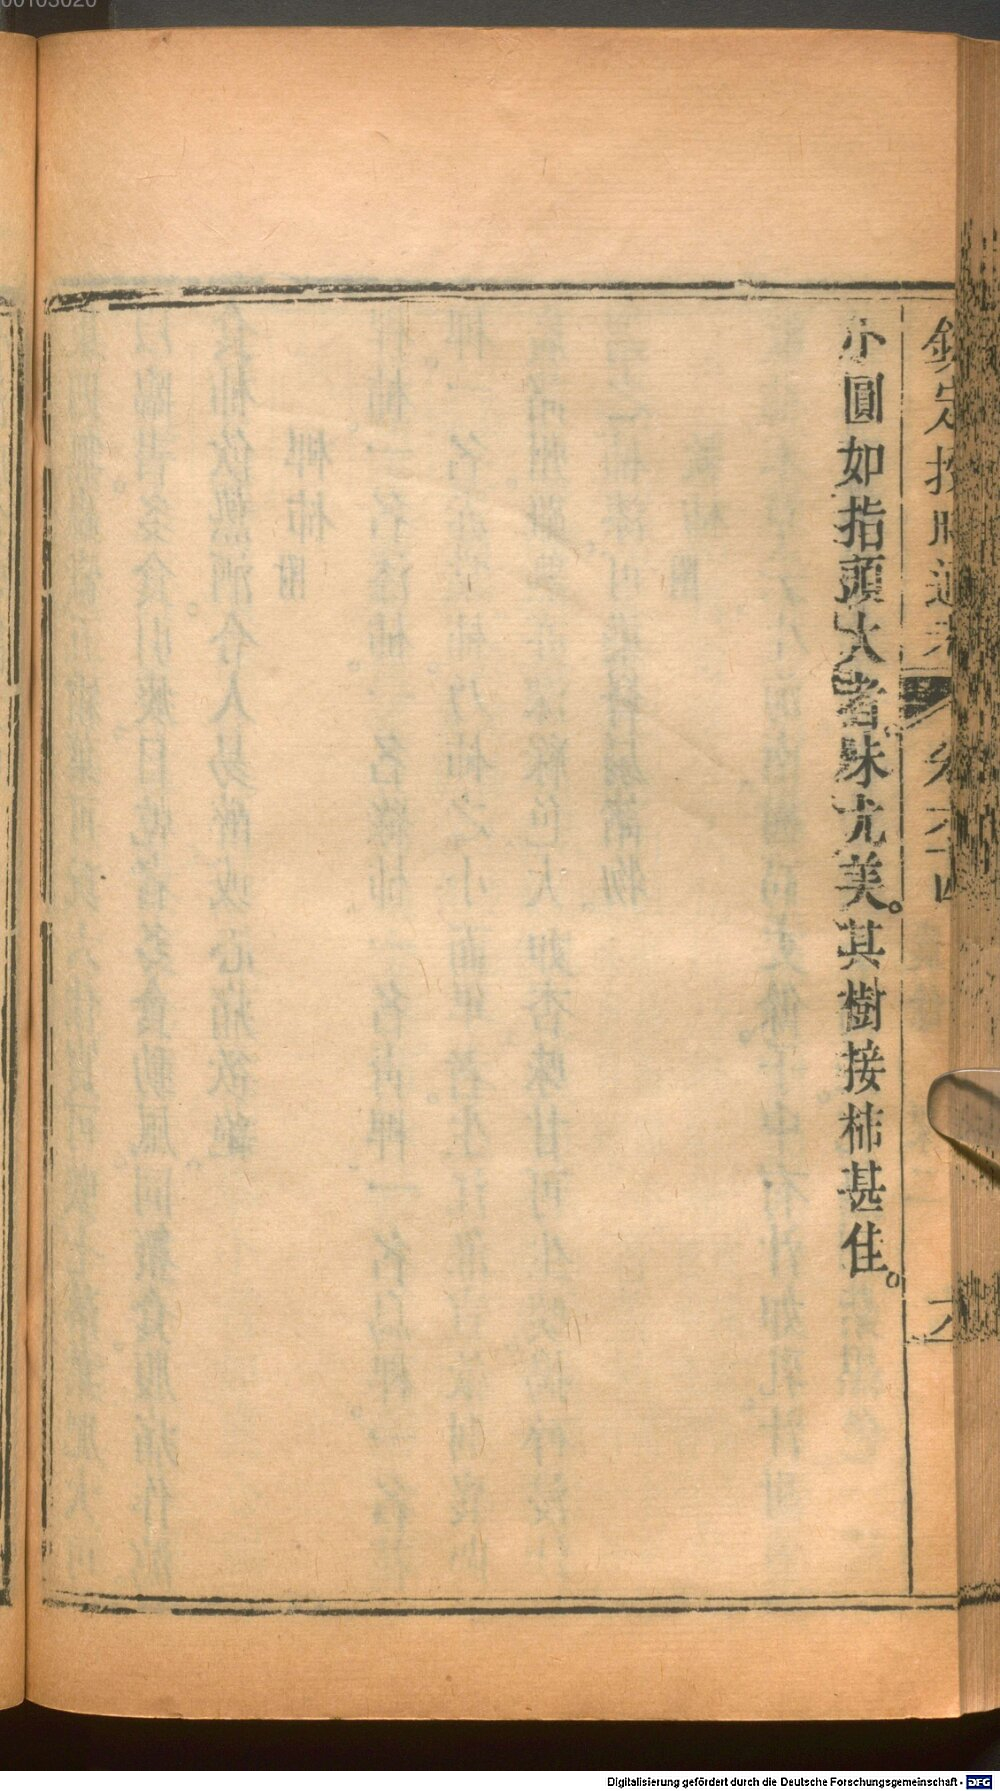 欽定授時通考 卷六十四 六
小圓如指頭大者味尤美。其樹接柿甚佳。
Digitalisierung gefördert durch die Deutsche Forschungsgemeinschaft - DFG